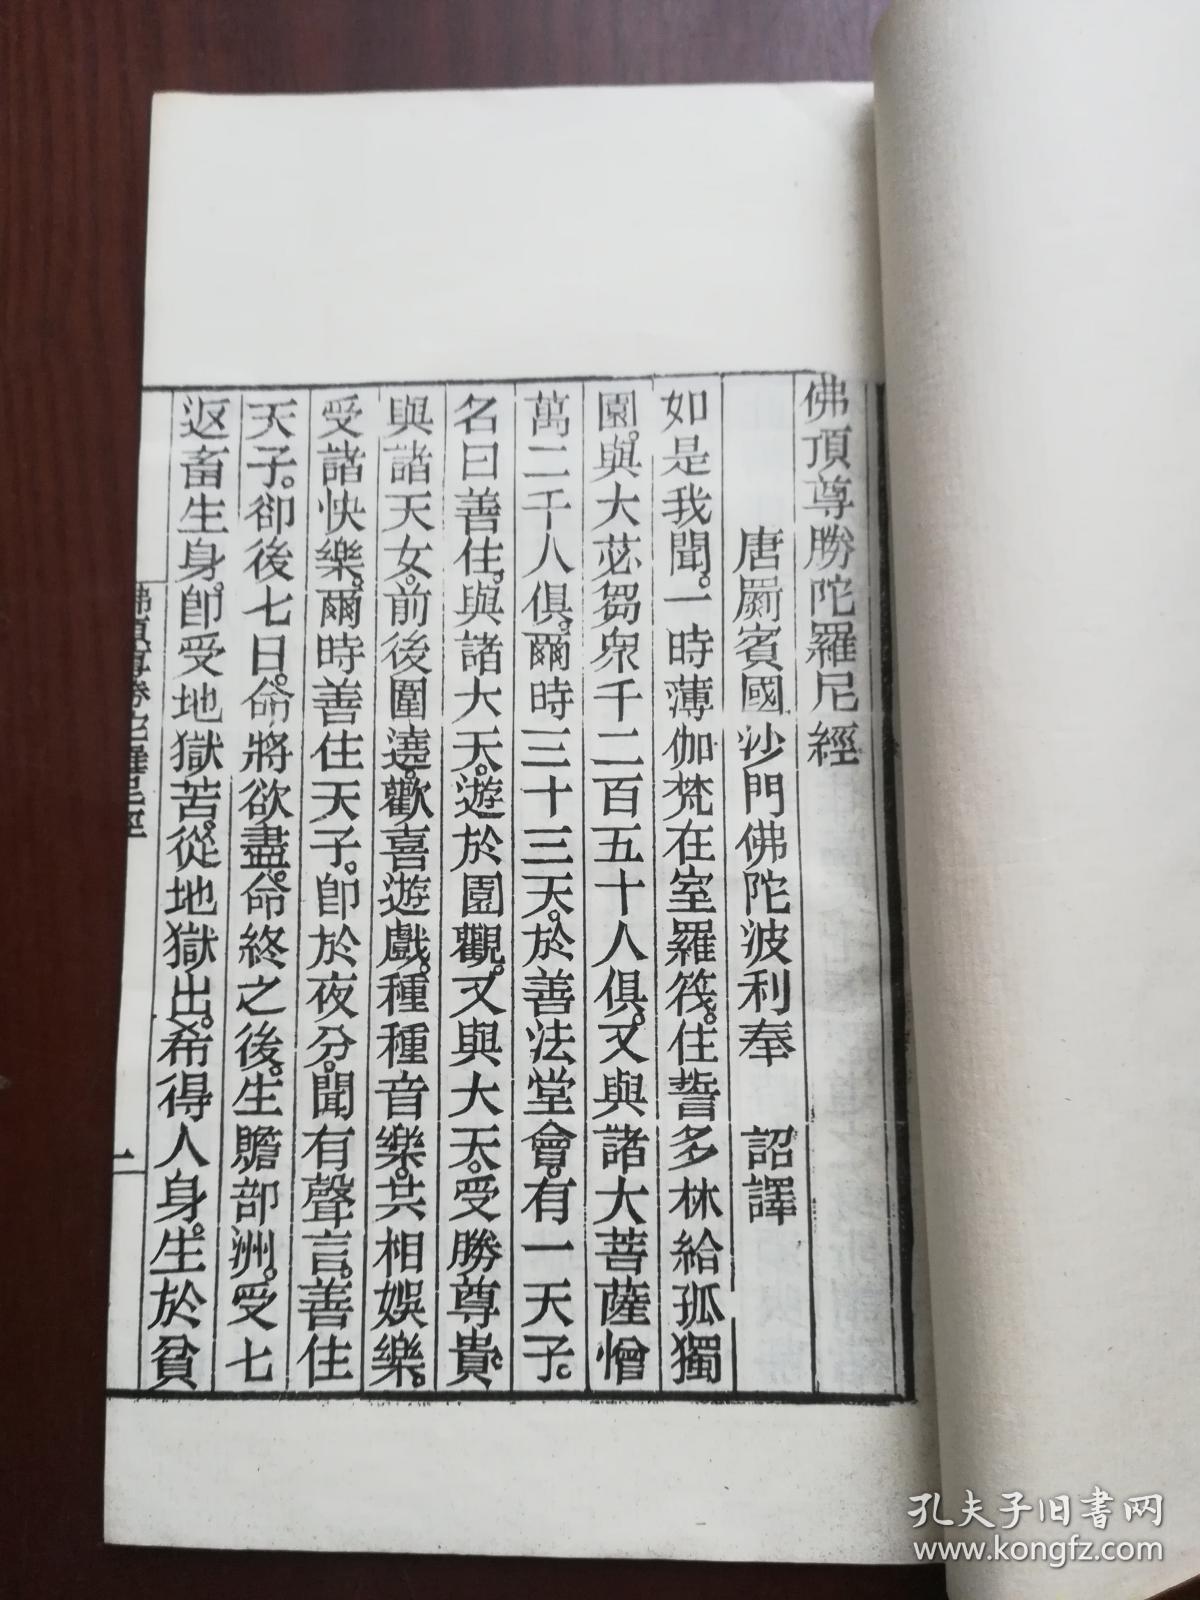 佛頂尊勝陀羅尼經
唐罽賓國沙門佛陀波利奉 詔譯
如是我聞。一時薄伽梵在室羅筏。住誓多林給孤獨
園。與大苾芻眾千二百五十人俱。又與諸大菩薩憎
萬二千人俱。爾時三十三天。於善法堂會。有一天子。
名曰善住。與諸大天。遊於園觀。又與大天。受勝尊貴。
與諸天女。前後圍遶。歡喜遊戲。種種音樂。共相娛樂。
受諸快樂。爾時善住天子。即於夜分。聞有聲言。善住
天子。卻後七日。命將欲盡。命終之後。生贍部洲。受七
返畜生身。即受地獄苦。從地獄出。希得人身。生於貧
佛頂尊勝陀羅尼經 二
孔夫子旧书网
www.kongfz.com